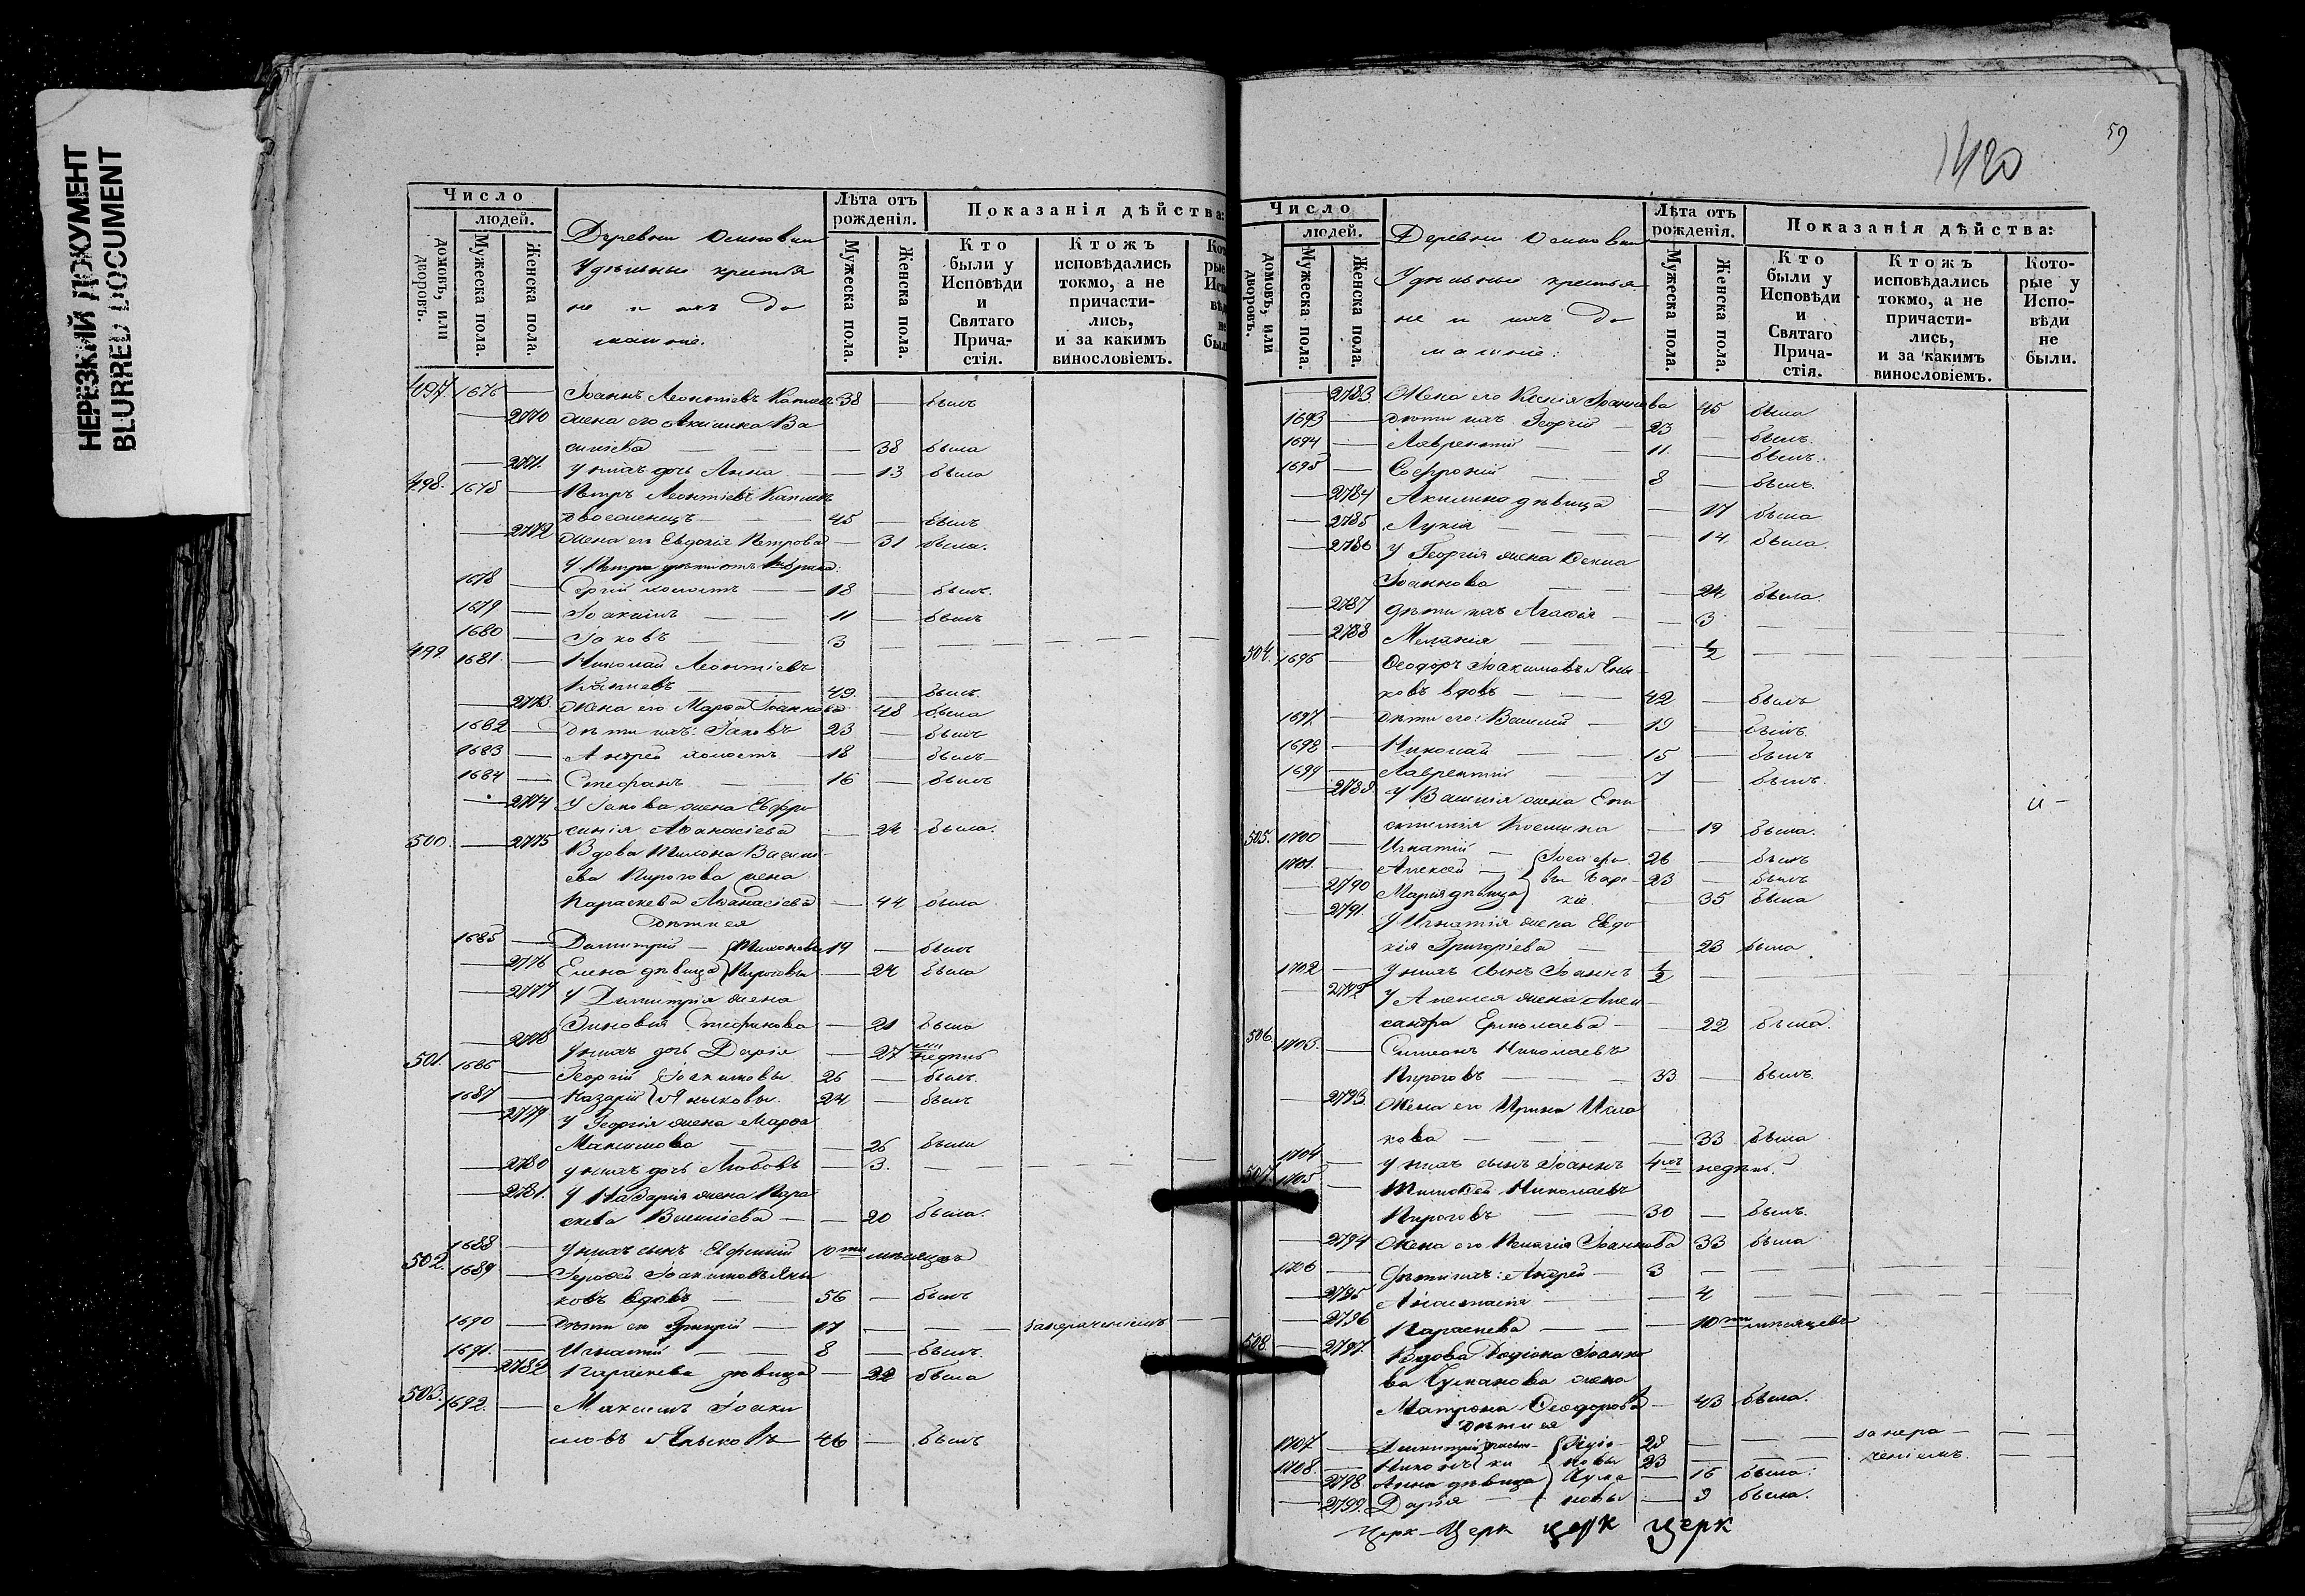 НЕРЕЗКИЙ ДОКУМЕНТ
BLURRED DOCUMENT
Число
людей.
домовъ, или дворовъ.
Мужеска пола.
Женска пола.
Удѣльные крестья
не и ихъ до
машніе.
Лѣта отъ рожденія.
Мужеска пола.
Женска пола.
Показанія дѣйства:
Кто были у Исповѣди и Святаго Прича-стія.
Ктожъ исповѣдались токмо, а не причасти-лись, и за какимъ винословіемъ.
497. 1676 — Іоаннъ Леонтіевъ 38 — былъ
— 2770 жена его Акилина Ва
силіева — 38 была
— 2771. у нихъ дочь Анна — 13 была
498. — Петръ Леонтіевъ
двоеженецъ 45 — былъ
— 2772 жена его Евдокія Петрова — 31 была.
У Петра дѣти отъ
1678 — Сергій холостъ — 18 — былъ.
1679 — Іоакимъ 11 — былъ
1680 — Іаковъ 3
499. 1681. — Николай Леонтіевъ
49. — былъ.
— 2773. жена его Марѳа Іоаннова 48 была
1682 — Дѣти ихъ: Іаковъ 23 — былъ
1683 — Андрей холостъ — 18 — былъ
1684 — Стефанъ 16 — былъ
— 2774 У Іакова жена Евфро
синія Аѳанасіева — 24 была.
500. — 2775 Вдова Тихона Василі-
ева Пирогова жена
Параскева Аѳанасіева — 44 была
Дѣти ея
1685 — Димитрій — Тихоновы 19 — былъ
— 2776 Елена дѣвица Пироговы — 24 была
— 2777 У Димитрія жена
Зиновія Стефанова — 21 была
— 2778 у нихъ дочь Дарія — 27 ми недѣль
501. 1686 — Георгій Іоакимовы 26 — былъ.
1687 — Назарій Языковы. 24 — былъ
— 2779 У Георгія жена Марѳа
Максимова — 26 была
— 2780 у нихъ дочь Любовь — 3.
— 2781. У Назарія жена Пара
скева Василіева — 20 была.
1688 — у нихъ сынъ Евфимій 10 ти мѣсяцовъ
502. 1689 — Іероѳей Іоакимовъ Язы
ковъ вдовъ 56 — былъ
1690 — Дѣти его Григорій 17 — за нераченіемъ
1691. — Игнатій 8 — былъ.
— 2782 Параскева дѣвица — 22 была
503. 1692. — Максимъ Іоаки
мовъ Языковъ 46 — былъ
1420
59
Число
людей.
домовъ, или дворовъ.
Мужеска пола.
Женска пола.
Удѣльные крестья
не и ихъ до
машніе:
Лѣта отъ рожденія.
Мужеска пола.
Женска пола.
Показанія дѣйства:
Кто были у Исповѣди и Святаго Прича-стія.
Ктожъ исповѣдались токмо, а не причасти-лись, и за какимъ винословіемъ.
Кото-рые у Испо-вѣди не были.
— 2783. Жена его Ксенія Іоаннова 45 была
1693 — дѣти ихъ Георгій — 23 — былъ.
1694 — Лаврентій 11. — былъ.
1695 — Софроній 8 — былъ.
— 2784 Акилина дѣвица — 17 была
— 2785 Лукія 14. была.
— 2786 У Георгія жена
Іоаннова 24 была.
— 2787 дѣти ихъ Агафія 3
— 2788 Меланія 1/2
504. 1696 — Ѳеодоръ Іоакимовъ Язы-
ковъ вдовъ 42 — былъ
1697 — дѣти его: Василій — 19 — былъ.
1698 — Николай 15 — былъ
1699 — Лаврентій 7 — былъ.
— 2789 У Василія жена
— 19 была.
505. 1700 — Игнатій — 26 — былъ
1701. — Алексей — 23 — былъ
— 2790 Марія дѣвица — 35 была
— 2791. У Игнатія жена Евдо
кія Григоріева 23 была
1702 — у нихъ сынъ Іоаннъ 1/2
— 2792 У Алексея жена Алек-
сандра Ермолаева — 22 была.
506. — Симеонъ Николаевъ
Пироговъ 33 — былъ.
— 2793. Жена его Ирина Исаа
кова — 33 была
1704 — у нихъ сынъ Іоаннъ недѣль.
507. 1705 — Тимоѳей Николаевъ
Пироговъ 30 — былъ.
— 2794 Жена его Пелагія Іоаннова 33 была
1706 — Дѣти ихъ: Андрей — 3
— 2795 Анастасія — 4
— 2796 Параскева — 10 ти мѣсяцевъ
508. — 2797. Вдова Родіона Іоанно
ва жена
Матрона Ѳеодорова — 43 была.
Дѣти ея
1707 — Димитрій 28 — за нера-
1708. — 23 — ченіемъ.
— 2798 Анна дѣвица — 16 была.
— 2799. Дарія — 9 была.
Церк - Церк церк церк